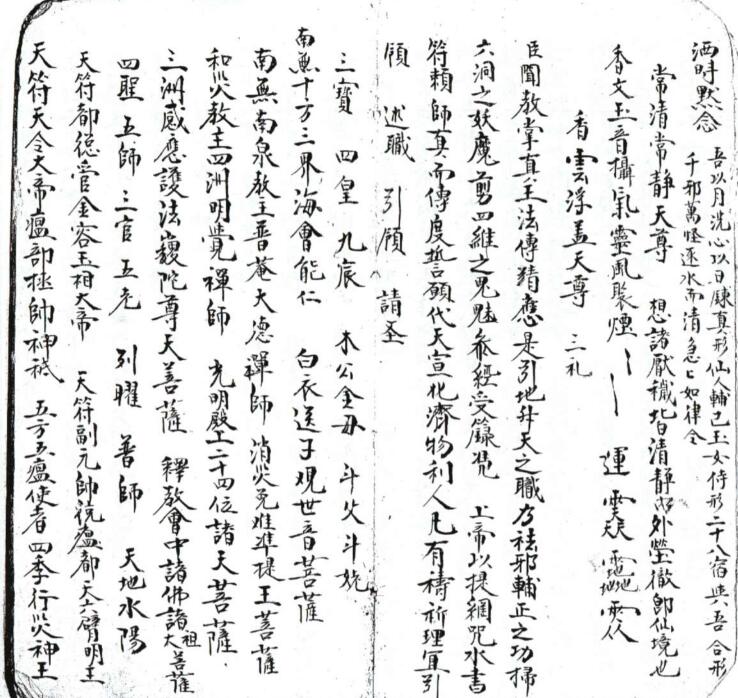 洒時黙念
吾以月洗心以日鍊真形仙人輔己玉女侍形二十八宿與吾合形
千邪萬怪逐水而清急々如律令
常清常静天尊 想諸厭穢皆自清静內外瑩徹即仙境也
香文玉音攝氣靈風聚煙 運
香雲浮盖天尊 三礼
臣聞教掌真王法傳猜應是引地升天之職乃祛邪輔正之功掃
六洞之妖魔剪四維之鬼魅叅經受籙凭 上帝以提綱咒水書
符賴師真而傳度誓願代天宣化濟物利人凡有禱祈理宜引
領 述職 引領 請圣
三寳 四皇 九宸 木公金母 斗父斗姥
南無十方三界海會能仁 白衣送子观世音菩薩
南無南泉教主普菴大德禪師 消災免难準提王菩薩
和災教主四洲明覺禪師 光明殿上二十四位諸天菩薩
三洲感應護法韋陀尊天菩薩 釋教會中諸佛諸祖大菩薩
四聖五師 三官五老 列曜 普師 天地水陽
天符都德管金容玉相大帝 天符副元帥統瘟都天六臂明王
天符天令大帝瘟部極帥神祇 五方五瘟使者四季行災神王